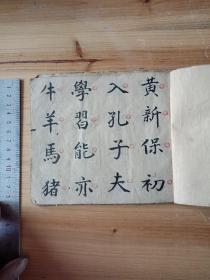 黄新保初
入孔子夫
學習能亦
牛羊馬猪